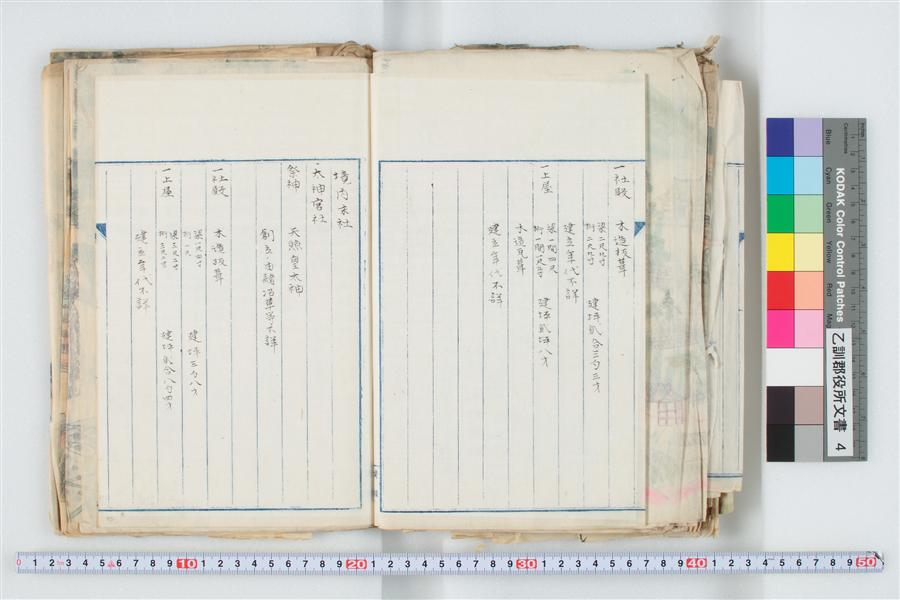 一社殿
木造板葺
梁二尺七寸
桁二尺九寸
建坪貳合三勺三才
建立年代不詳
一上屋
梁一間四尺
桁一間一尺
建坪貳坪八才
木造瓦葺
建立年代不詳
境内末社
大神宮社
祭神
天照皇大神
創立由緒沿革等不詳
一社殿
木造板葺
梁一尺四寸
桁一尺
建坪三勺八才
一上屋
梁三尺二寸
桁三尺二寸
建坪貳合八勺四才
建立年代不詳
KODAK Color Control Patches
Blue
Cyan
Green
Yellow
Red
乙訓郡役所文書 4
0 1 2 3 4 5 6 7 8 9 10 1 2 3 4 5 6 7 8 9 20 1 2 3 4 5 6 7 8 9 30 1 2 3 4 5 6 7 8 9 40 1 2 3 4 5 6 7 8 9 50